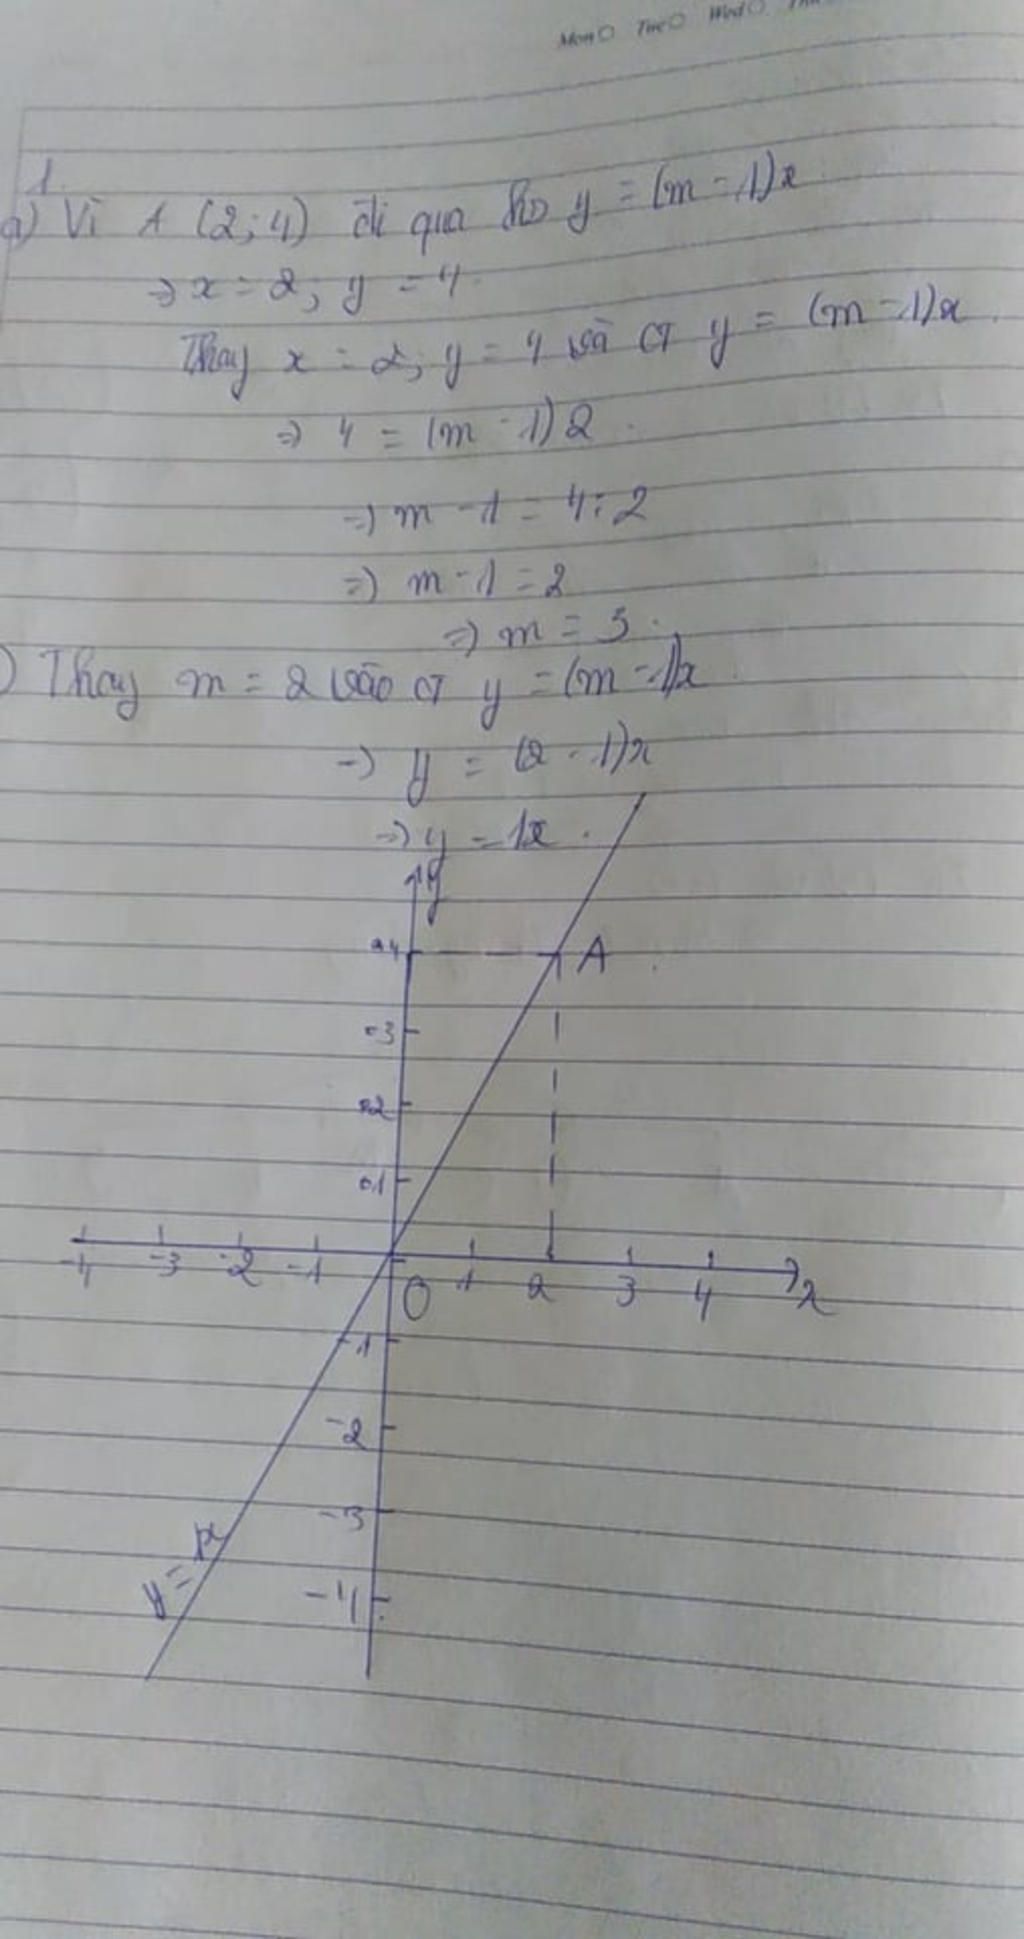 Mon Tue Wed
1.
a) Vì A (2; 4) đi qua hs y = (m - 1)x
=> x = 2; y = 4.
Thay x = 2; y = 4 và CT y = (m - 1)x.
=> 4 = (m - 1) 2.
=> m - 1 = 4 : 2
=> m - 1 = 2
=> m = 3.
) Thay m = 2 vào CT y = (m - 1)x.
=> y = (2 - 1)x
=> y = 1x.
y
4 A
3
2
1
-4 -3 -2 -1 O 1 2 3 4 x
-1
-2
-3
y = x
-4